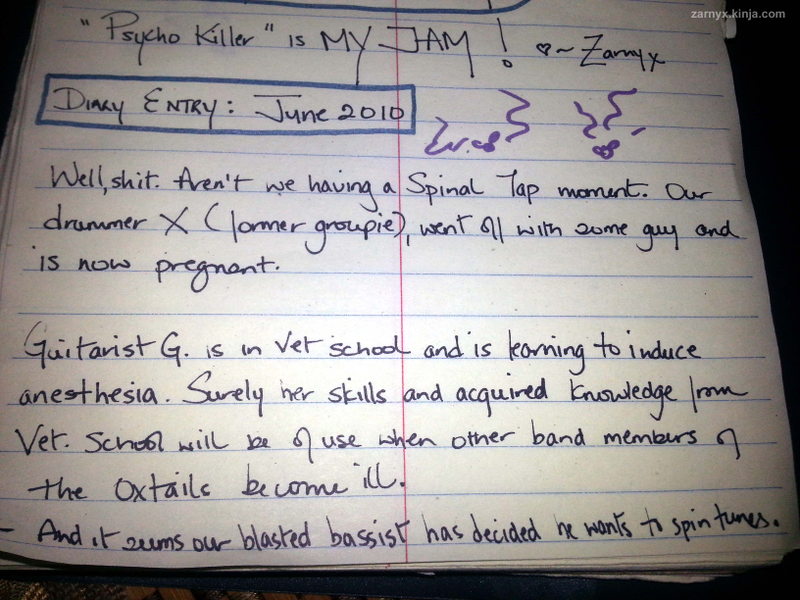 zarnyx.kinja.com
"Psycho Killer" is MY JAM! ♡~ Zarnyx
Diary Entry: June 2010
Well, shit. Aren't we having a Spinal Tap moment. Our
drummer X (former groupie), went off with some guy and
is now pregnant.
Guitarist G. is in Vet school and is learning to induce
anesthesia. Surely her skills and acquired knowledge from
Vet. School will be of use when other band members of
the Oxtails become ill.
- And it seems our blasted bassist has decided he wants to spin tunes.